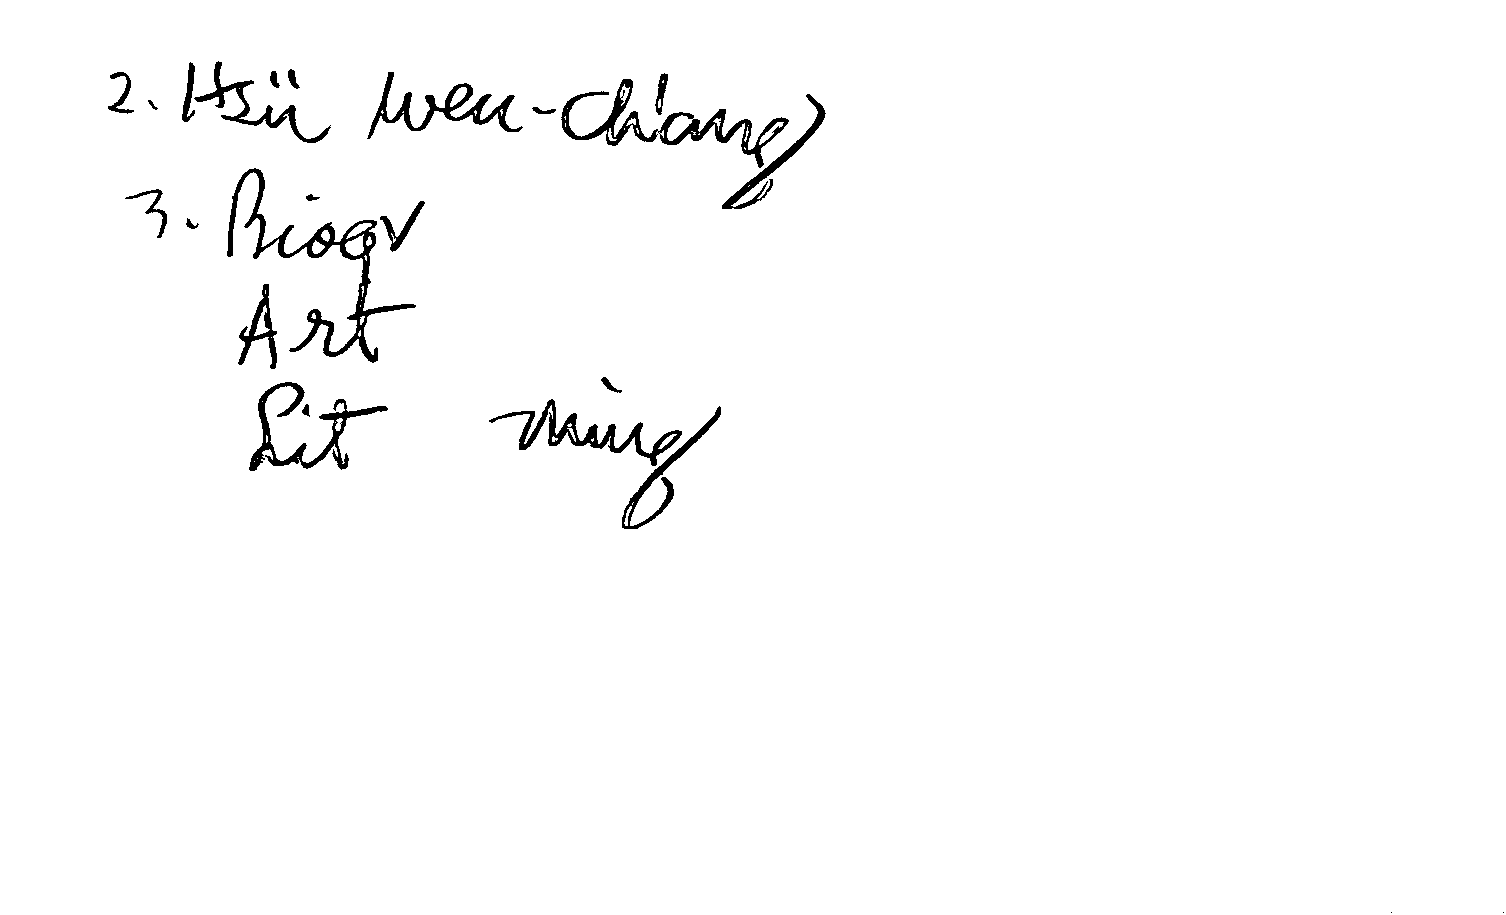 2. Hsü Wen-Ch'ang
3. Biogr
Art
Lit Ming